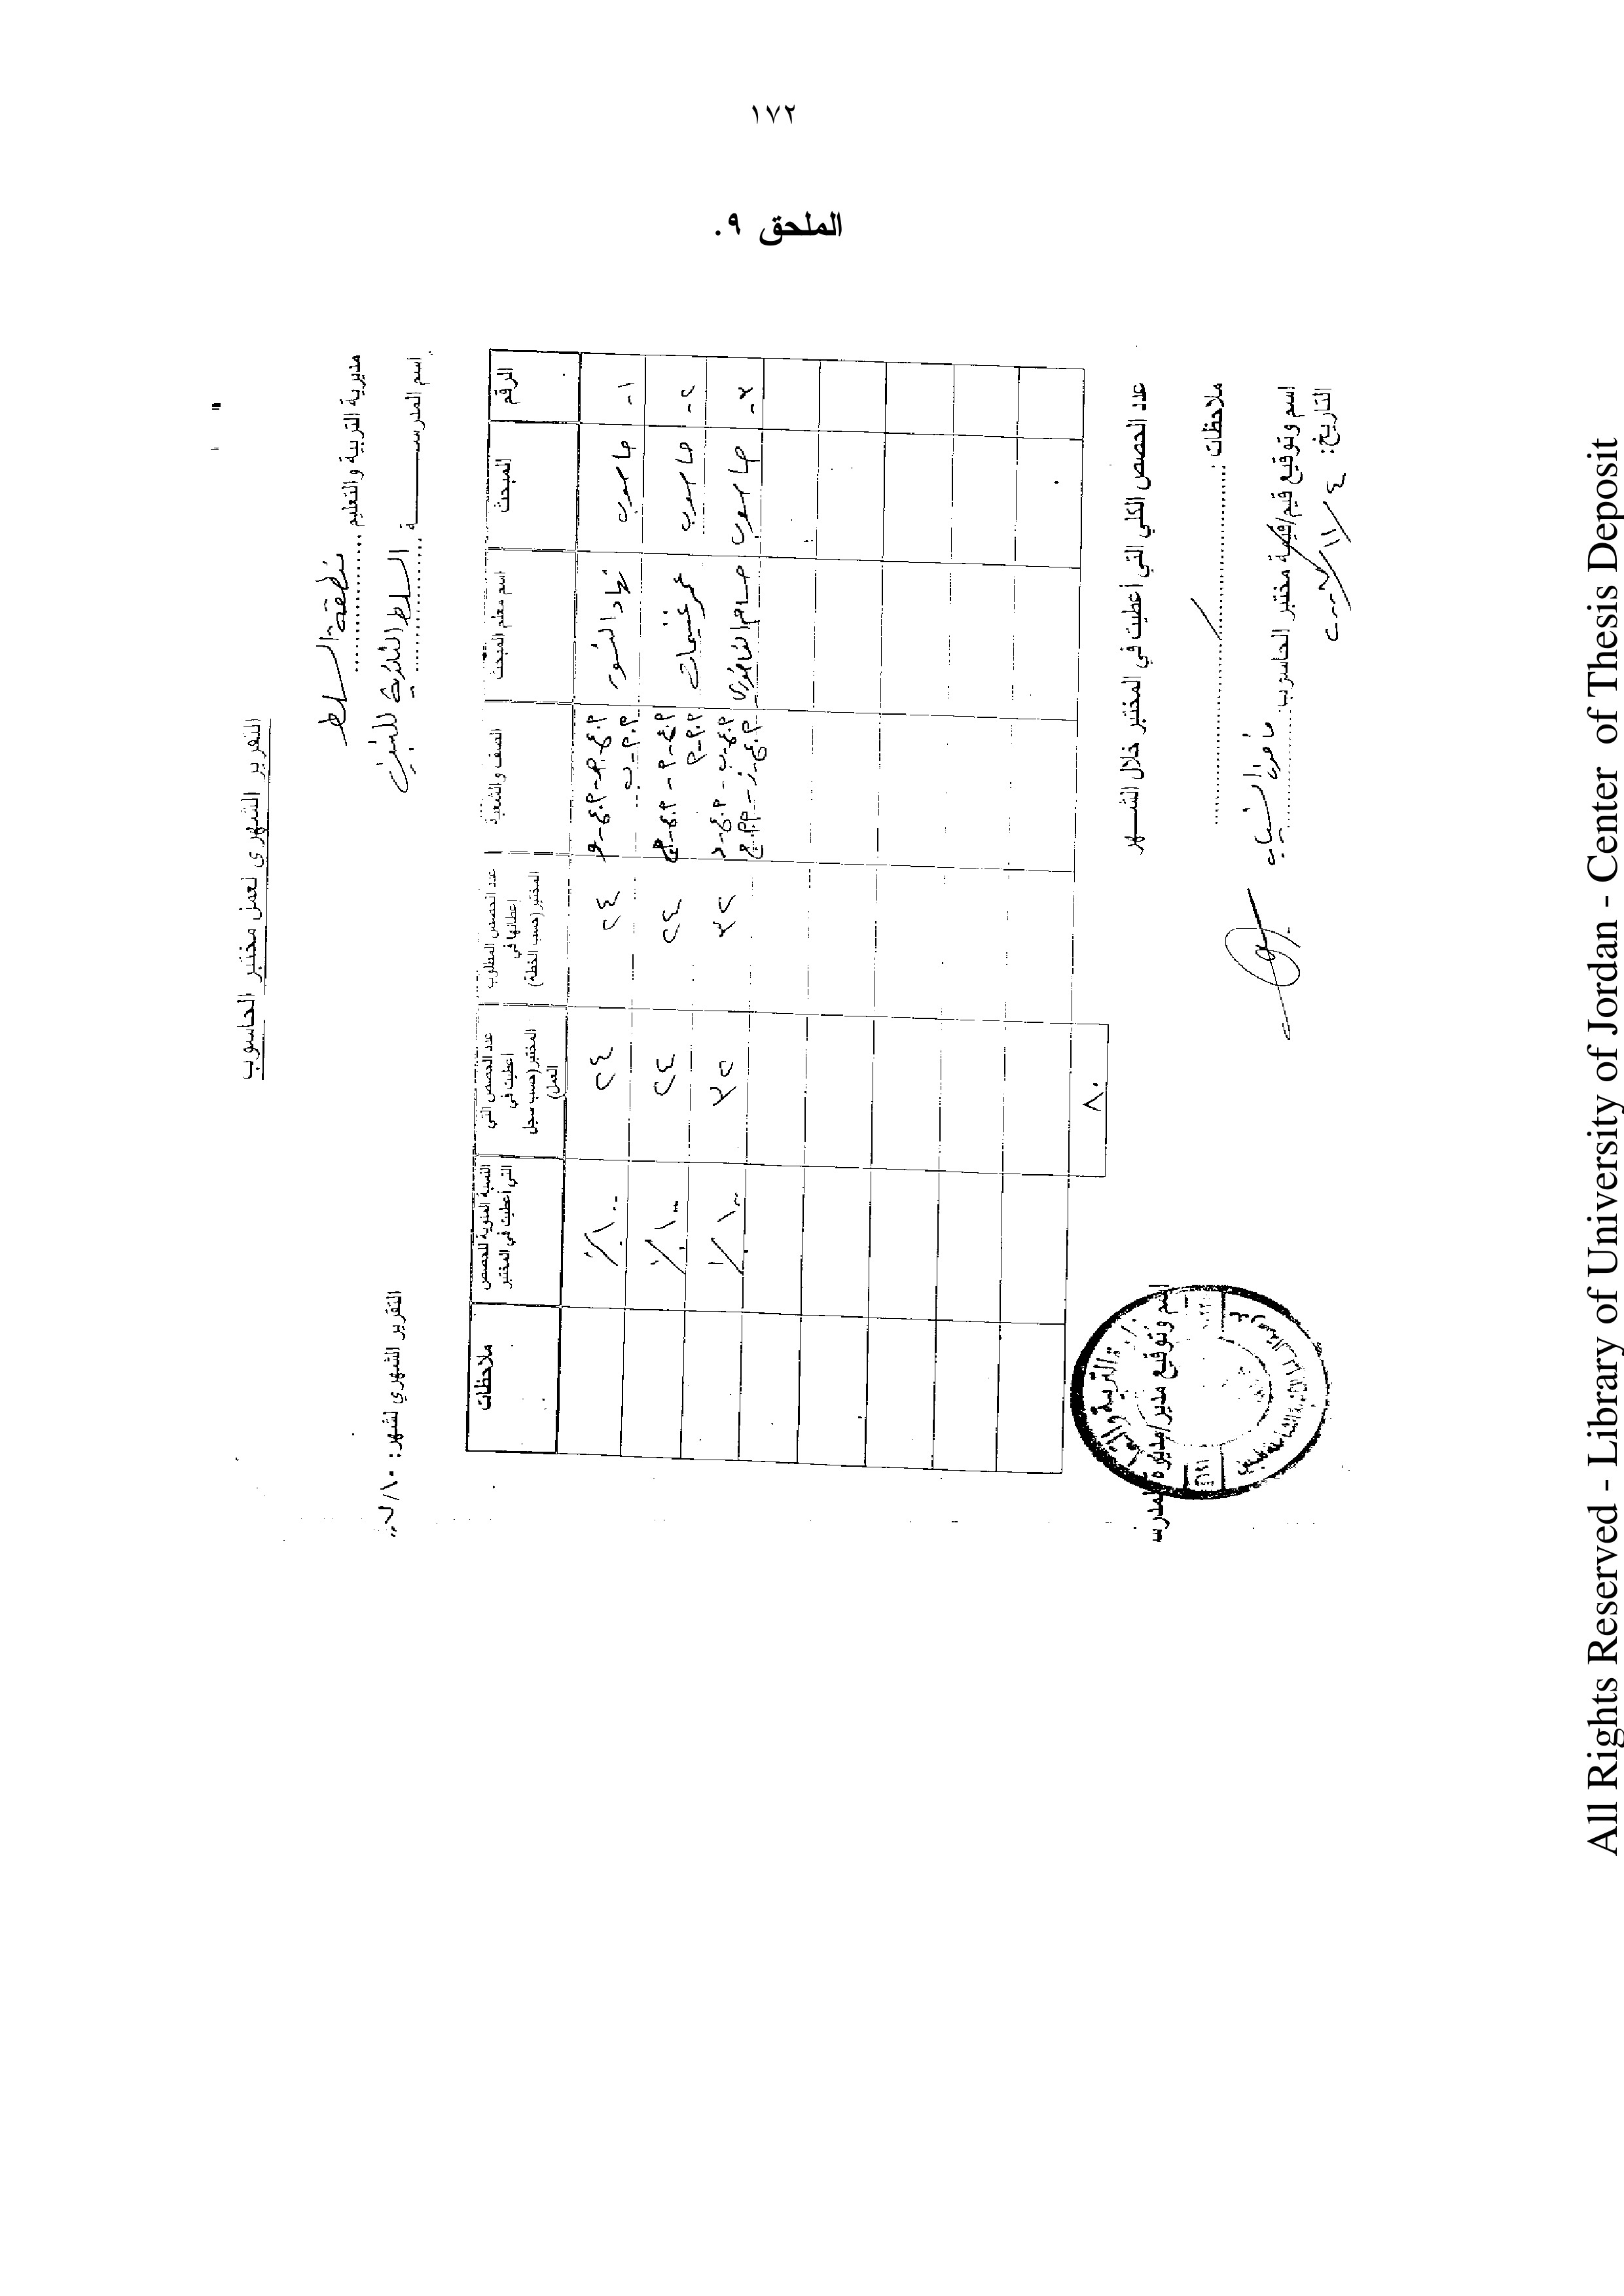 ١٧٢
الملحق ٩.
التقرير الشهري لعمل مختبر الحاسوب
مديرية التربية والتعليم منطقة السلط
اسم المدرســـــــة السلط الثانوية للبنين
التقرير الشهري لشهر: ١٠/
الرقم المبحث اسم معلم المبحث الصف والشعبة عدد الحصص المطلوب إعطائها في المختبر (حسب الخطة) عدد الحصص التي أعطيت في المختبر (حسب سجل العمل) النسبة المئوية للحصص التي أعطيت في المختبر ملاحظات
١- حاسوب ٢٤ ٢٤ ١٠٠٪
٢- حاسوب عمر غنيمات ٢٤ ٢٤ ١٠٠٪
٣- حاسوب حسام الفاعوري ٣٢ ٣٢ ١٠٠٪
عدد الحصص الكلي التي أعطيت في المختبر خلال الشـــهر ٨٠
ملاحظات :
اسم وتوقيع قيم/قيمة مختبر الحاسوب:
التاريخ: ٤/١١/
وتوقيع مدير/مديرة المدرسة
All Rights Reserved - Library of University of Jordan - Center of Thesis Deposit